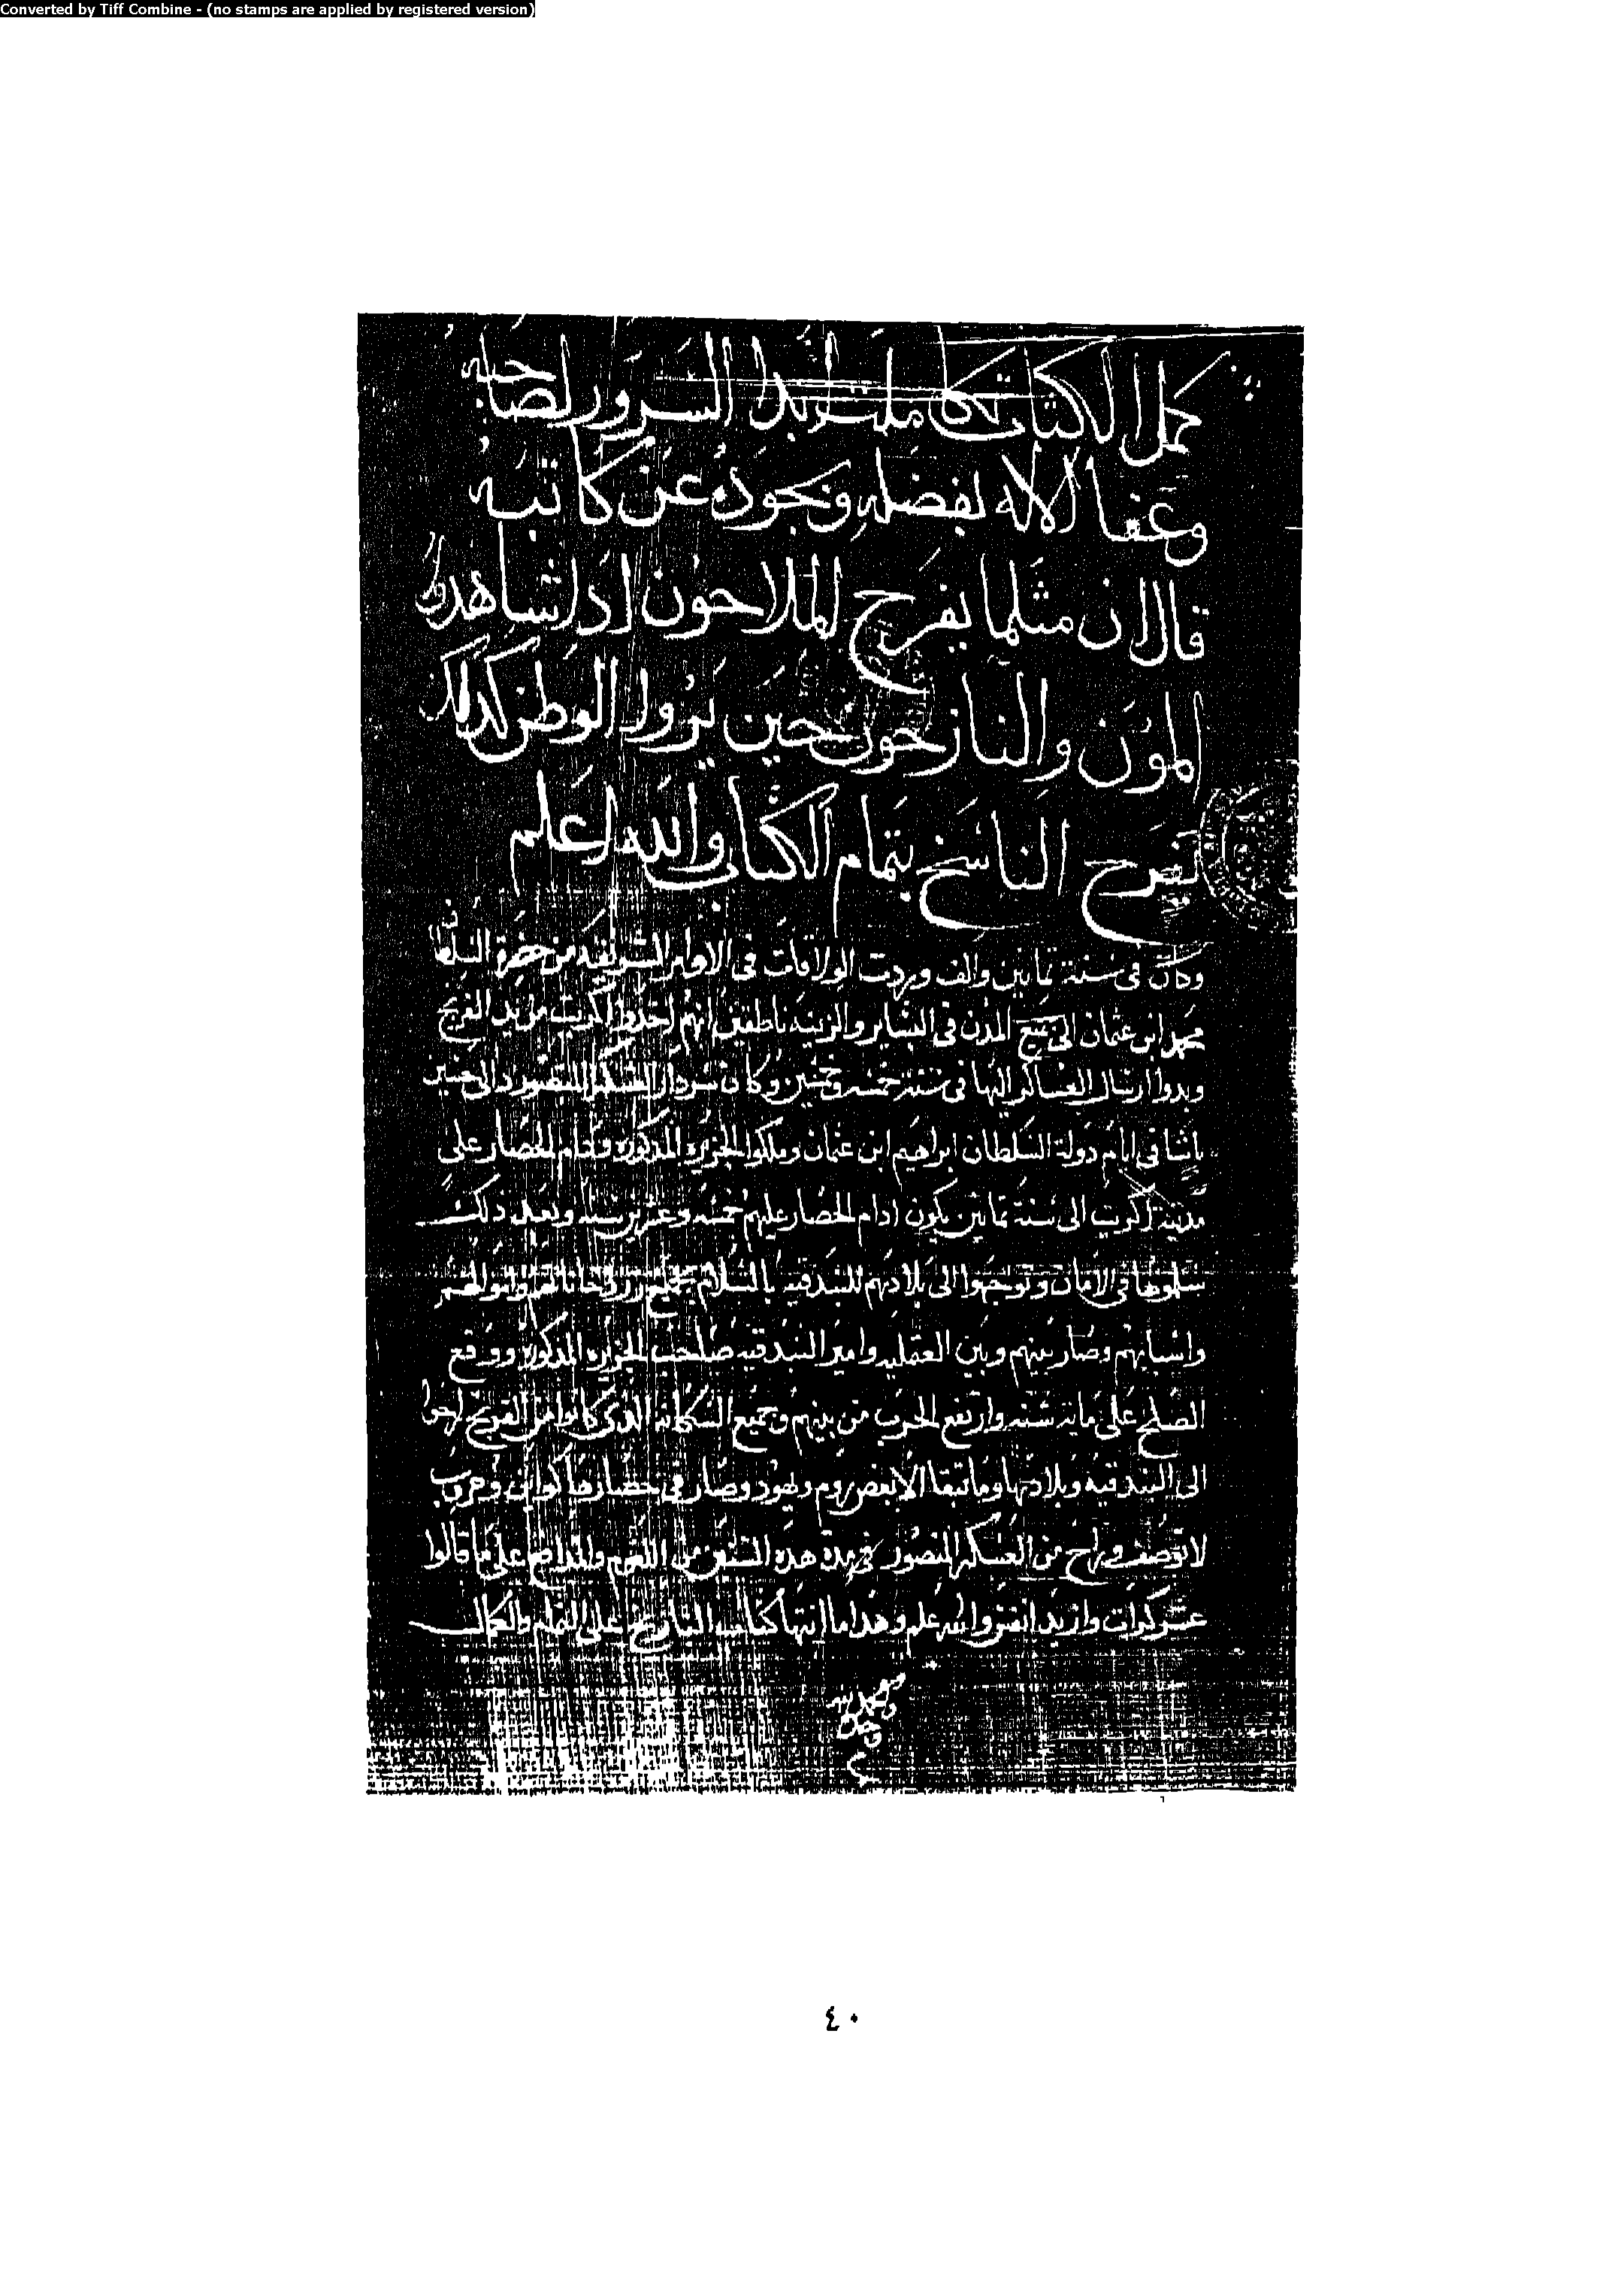 Converted by Tiff Combine - (no stamps are applied by registered version)
كمل الكتاب تكاملت السرور لصاحبه
وعفا الاله بفضله وبجوده عن كاتبه
قال ان مثلما يفرح الملاحون اذ لشاهدوا
المون والنازحون حين يروا الوطن كذلك
يفرح الناسخ بتمام الكتاب والله اعلم
وكان في سنة ثمانين والف وردت الولاقات في الاوامر الشريفه من حضرة السلطان
محمد ابن عثمان الى جميع المدن في البشاير والزينه اخدوا كريت من يد الفرنج
وبدوا ارسال العساكر اليها في سنة خمسه وخمسين وكان سردار العسكر المنصور
باشا في ايام دولة السلطان ابراهيم ابن عثمان وملكوا الجزيره المذكوره وقام الحصار على
مدينة كريت الى سنة ثمانين يكون ادام الحصار عليهم خمسه وعشرين سنه وبعد ذلك
سلموها في الامان وتوجهوا الى بلادهم البندقيه بالسلام جميع
وانسابهم وصار بينهم وبين وامير البندقيه صاحب الجزيره المذكوره ووقع
الصلح على مايه سنه وارتفع الحرب من بينهم وجميع السكانه الذي كانوا من الفرنج
الى البندقيه وبلادها وما تبقا الا بعض روم ويهود وصار في حصارها وحروب
لا توصف وراح من العسكر المنصور في مدة هذه السنين من اللغوم والمدافع على ما قالوا
كرات وازيد والله اعلم وهذا ما انتها كاتب التاريخ على التمام والكمال
٤٠